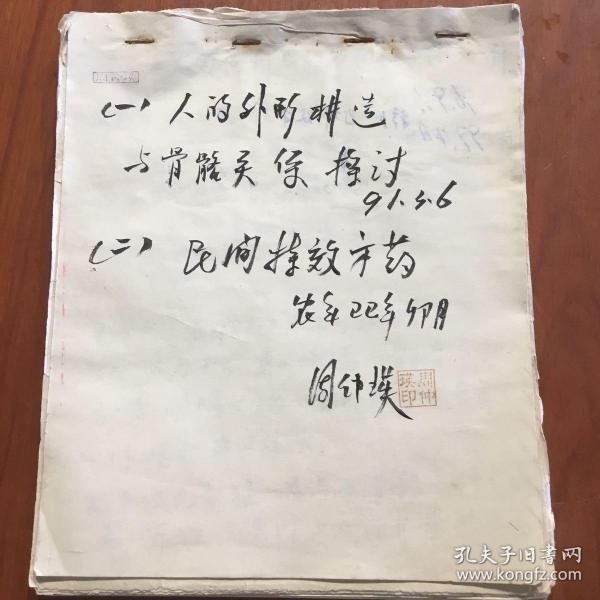 (一) 人的外形构造
与骨骼关系探讨
91.5.6
(二) 民间特效方药
农年巳巳年卯月
周仲瑛
周仲
瑛印
孔夫子旧书网
www.kongfz.com